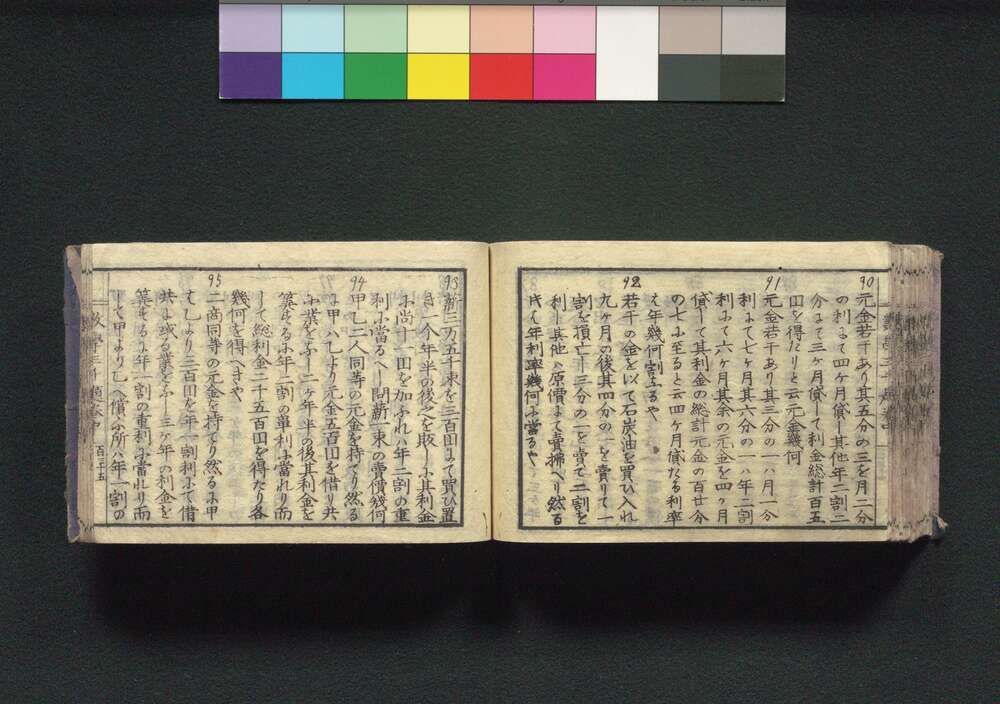 90
元金若干あり其五分の三を月二分
の利にて四ケ月貸し其他年二割二
分にて三ケ月貸して利金総計百五
円を得たりと云元金幾何
91
元金若干あり其三分の一ハ月一分
利にて七ケ月其六分の一ハ年二割
利にて六ケ月其余の元金を四ケ月
貸して其利金の総計元金の百廿分
の七に至ると云四ケ月貸たる利率
ハ年幾何割なるや
92
若干の金を以て石炭油を買ひ入れ
九ケ月の後其四分の一を賣りて一
割を損亡し三分の一を賣て二割を
利し其他ハ原價にて賣拂へり然る
時ハ年利率幾何に當るや
93
薪三万五千束を三百円にて買ひ置
き一个年半の後之を販しに其利金
に尚十一円を加ふれハ年二割の重
利に當るへし問薪一束の賣價幾何
94
甲乙二人同等の元金を持てり然る
に甲ハ乙より元金五百円を借り共
に業をふし二ケ年半の後其利金を
算せるに年二割の單利に當れり而
して総利金二千五百円を得たり各
幾何を得へきや
95
二商同等の元金を持てり然るに甲
ハ乙より三百円を年一割利にて借
共に或る業をふし三ケ年の利金を
算せるに年一割の重利に當れり而
して甲より乙へ償ふ所ハ年一割の
数學三千題 巻中 百三十五